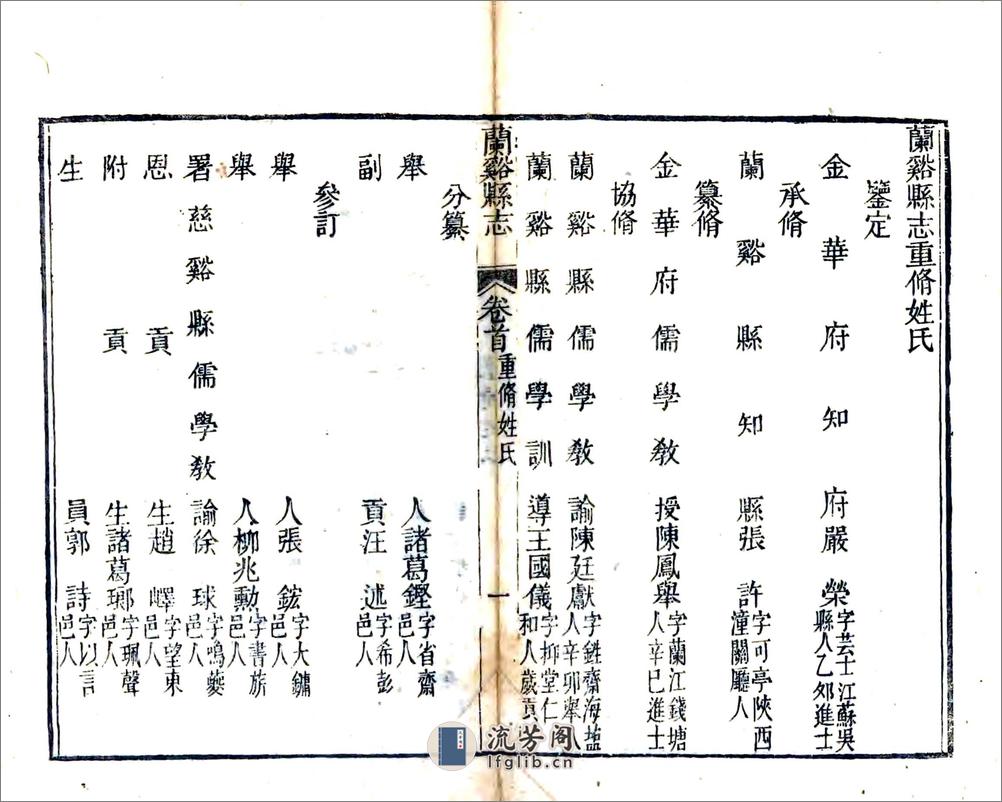 蘭谿縣志重脩姓氏
鑒定
金華府知府嚴榮字芸士江蘇吳縣人乙卯進士
承脩
蘭谿縣知縣張許字可亭陝西潼關廳人
纂脩
金華府儒學教授陳鳳舉字蘭江錢塘人辛巳進士
協脩
蘭谿縣儒學教諭陳廷獻字甡齋海鹽人辛卯舉人
蘭谿縣儒學訓導王國儀字抑堂仁和人歲貢
蘭谿縣志
卷首
重脩姓氏
一
分纂
舉人諸葛鏗字省齋邑人
副貢汪述字希彭邑人
參訂
舉人張鋐字大鏞邑人
舉人柳兆勳字書旂邑人
署慈谿縣儒學教諭徐球字鳴夔邑人
恩貢生趙嶧字望東邑人
附貢生諸葛瑯字珮聲邑人
生員郭詩字以言邑人
流芳阁
lfglib.cn